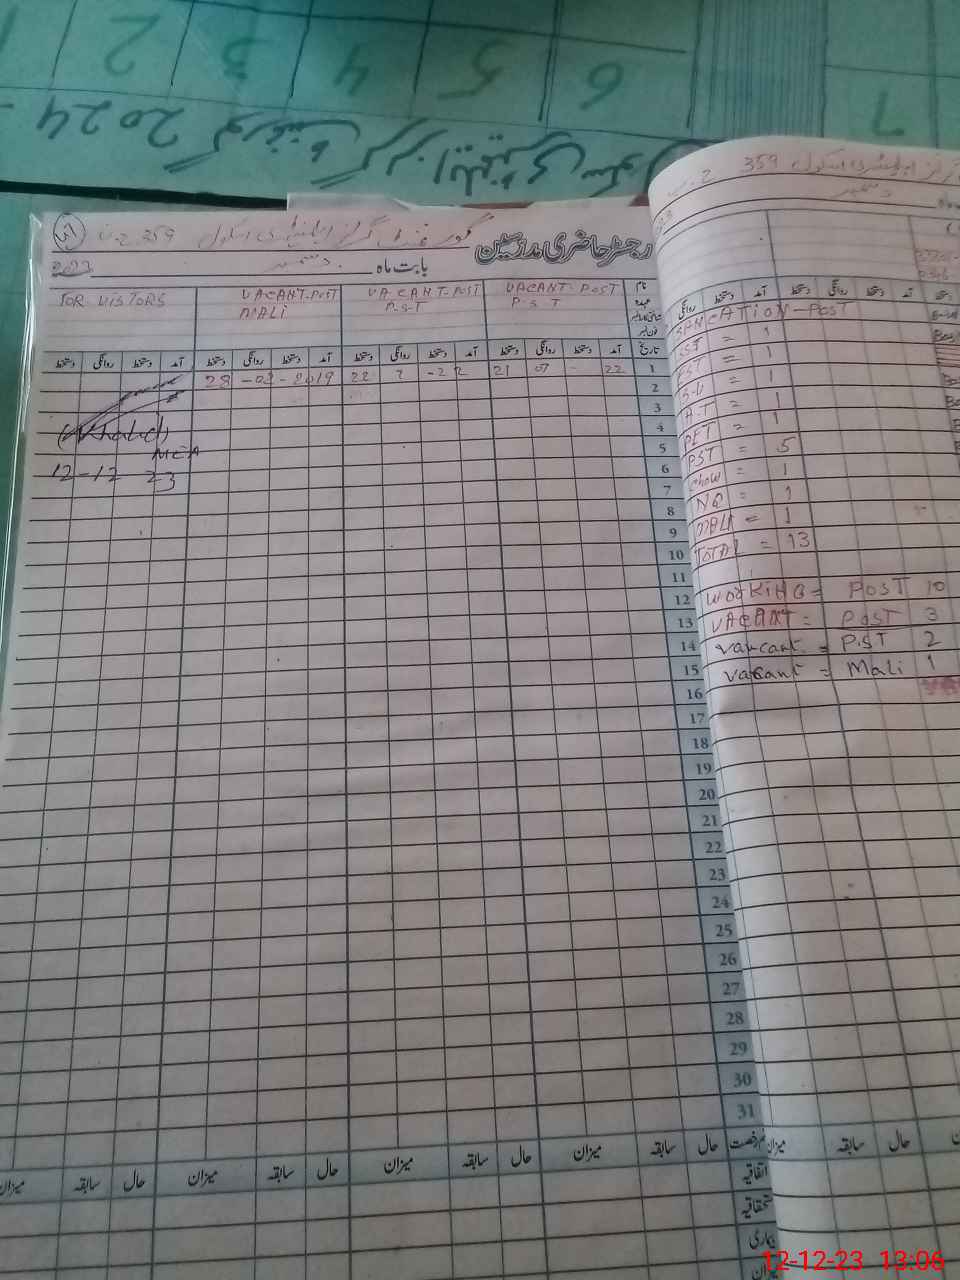 2024
6 5 4 3 2
7
رجسٹر حاضری مدرسین
گورنمنٹ گرلز ایلیمنٹری اسکول 359 ج.ب
بابت ماہ دسمبر
FOR VISTORS
VACANT-POST MALI
VACANT-POST P.S.T
VACANT-POST P.S.T
نام
عہدہ
تاریخ
دستخط روانگی دستخط آمد دستخط روانگی دستخط آمد دستخط روانگی دستخط آمد دستخط روانگی دستخط آمد
28 -02 -2019
22 2 -22
21 07 - 22
(Khalid)
MEA
12-12 23
1
2
3
4
5
6
7
8
9
10
11
12
13
14
15
16
17
18
19
20
21
22
23
24
25
26
27
28
29
30
31
میزان سابقہ حال میزان سابقہ حال میزان سابقہ حال میزان سابقہ حال
اتفاقیہ
استحقاقیہ
بیماری
میزان
گرلز ایلیمنٹری اسکول 359 ج.ب
دسمبر
روانگی دستخط آمد دستخط روانگی دستخط آمد دستخط
SANCATION-POST
SST = 1
EST = 1
= 1
A.T = 1
PET = 1
PST = 5
Chow = 1
NQ = 1
MALI = 1
TOTAL = 13
WORKING = POST 10
VACANT = POST 3
vancant = P.ST 2
vacant = Mali 1
میزان سابقہ حال
12-12-23 13:06